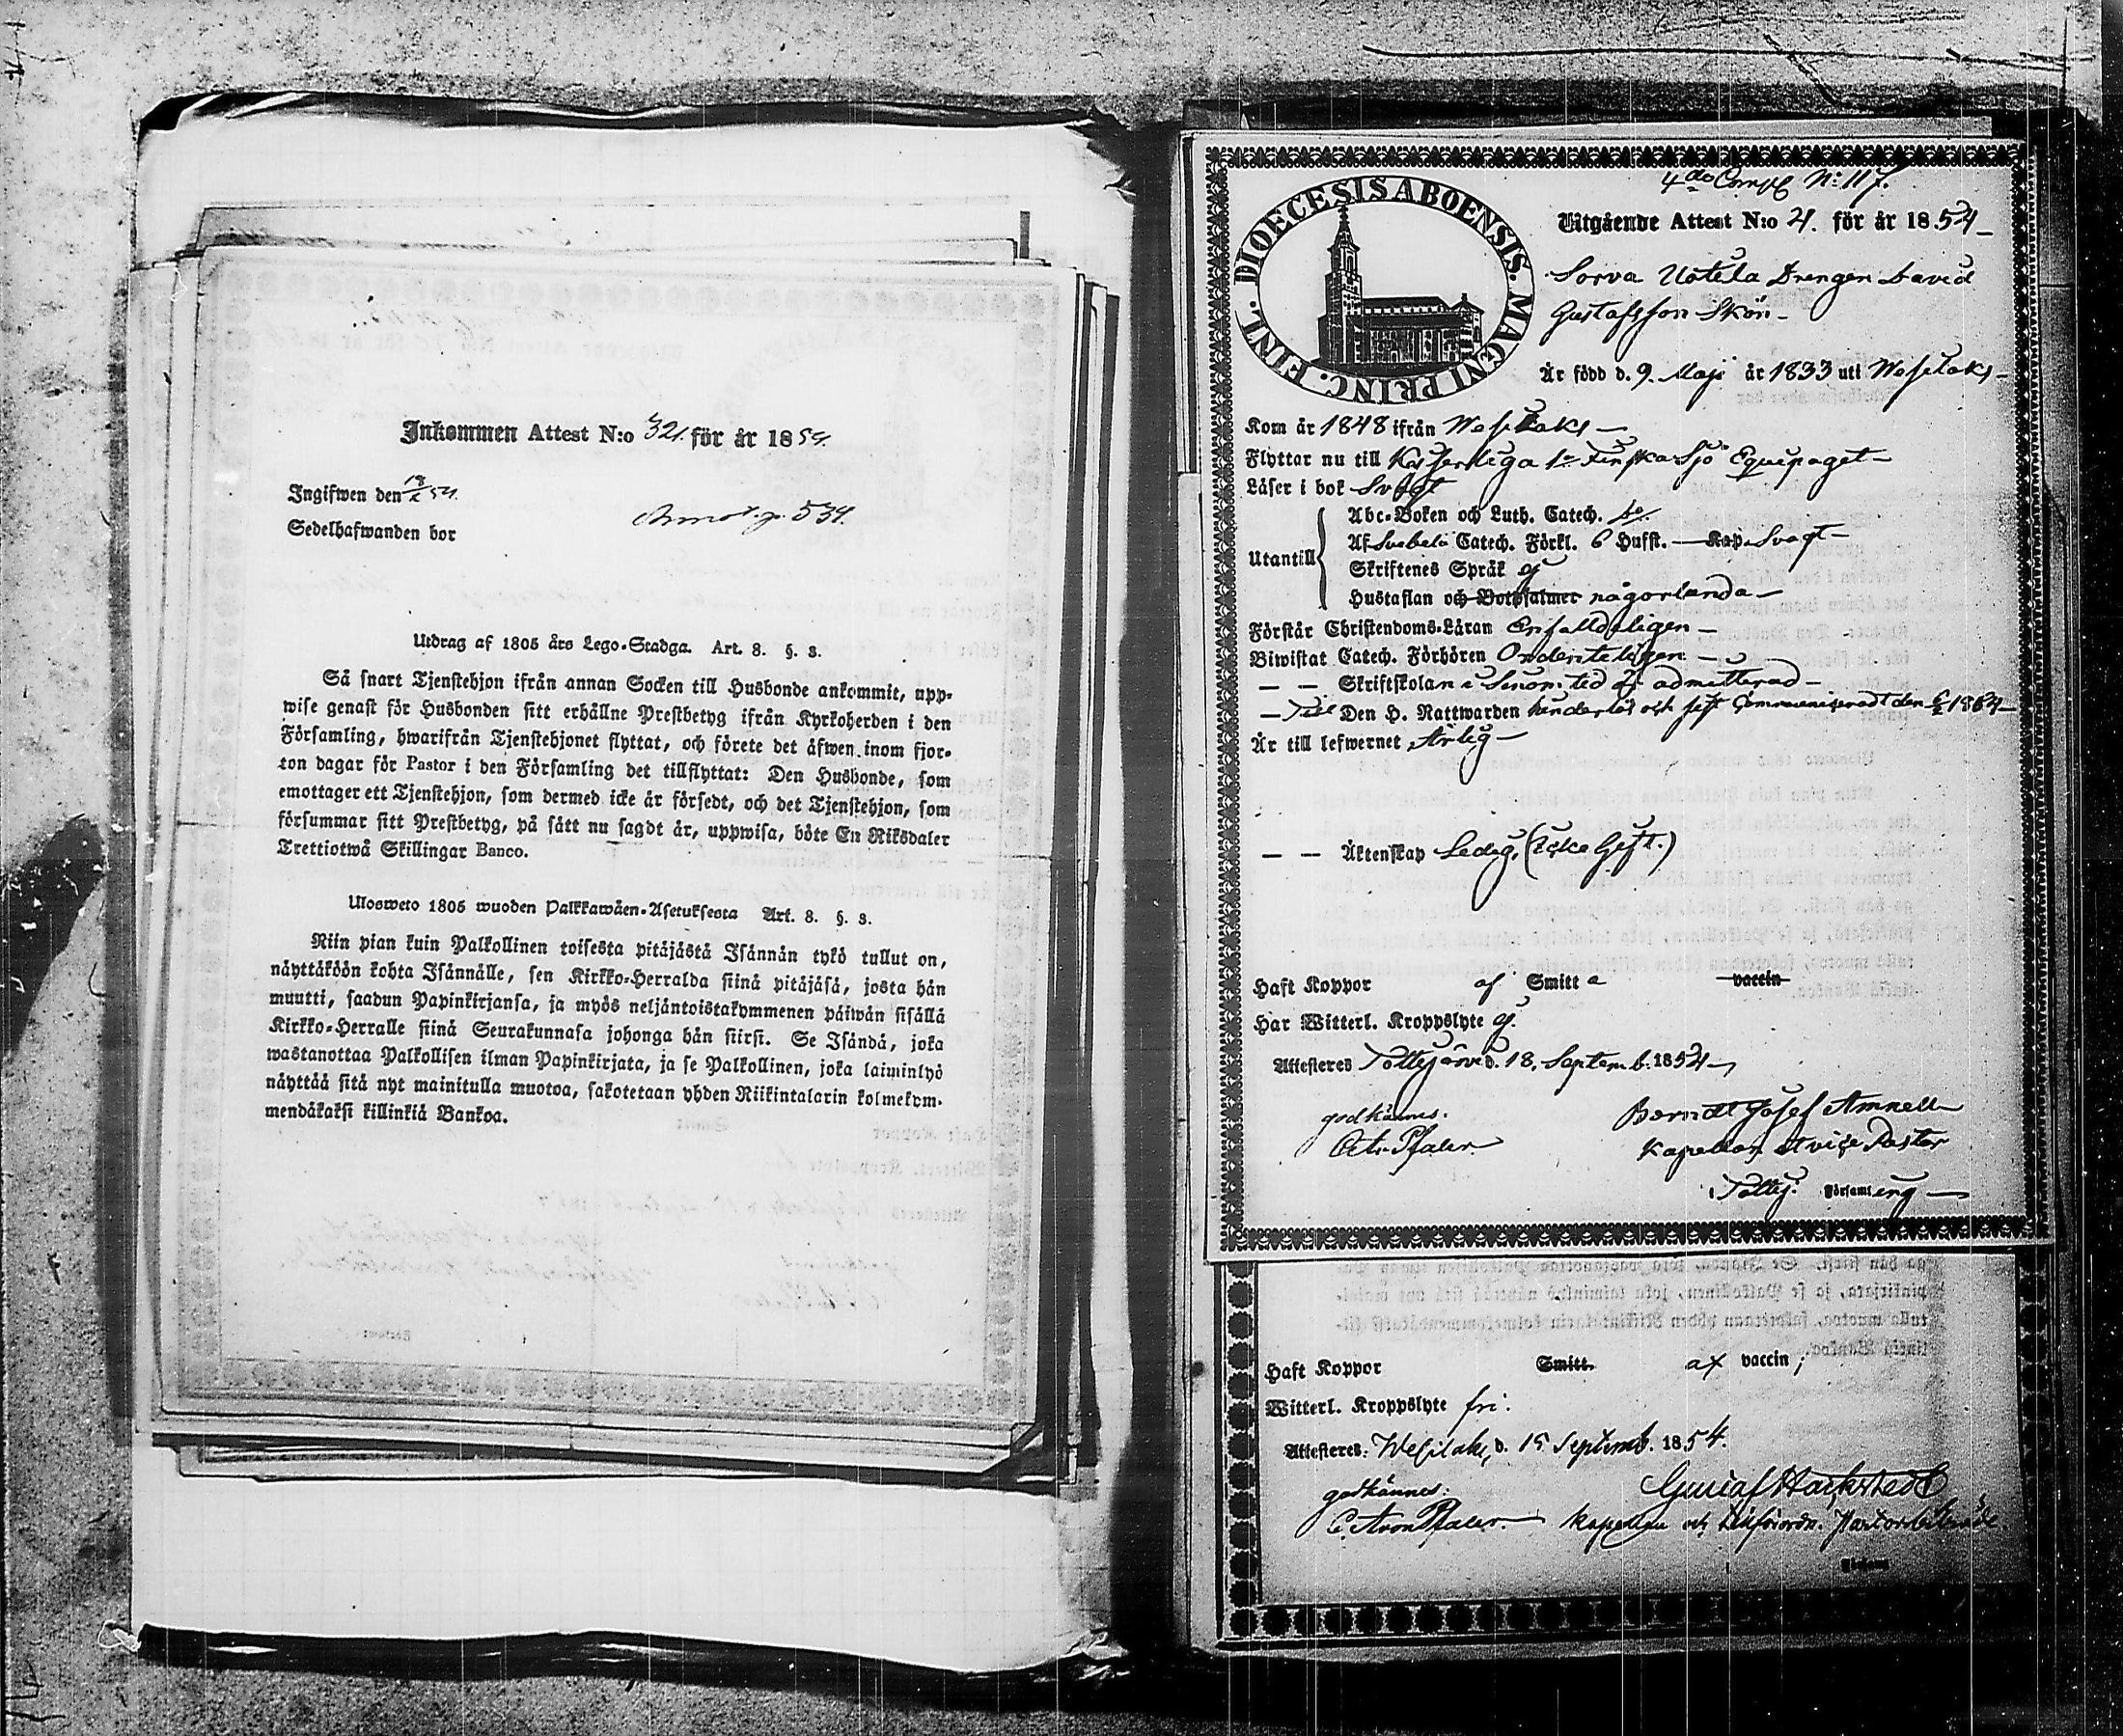 Inkommen Attest N:o 321. för år 1854.
Ingifwen den 18/X 54.
Annot. p. 534.
Sedelhafwanden bor
Utdrag af 1805 års Lego-Stadga. Art. 8. §. 3.
Så snart Tjenstehjon ifrån annan Socken till Husbonde ankommit, upp-
wise genast för Husbonden sitt erhållne Prestbetyg ifrån Kyrkoherden i den
Församling, hwarifrån Tjenstehjonet flyttat, och förete det äfwen inom fjor-
ton dagar för Pastor i den Församling det tillflyttat: Den Husbonde, som
emottager ett Tjenstehjon, som dermed icke är försedt, och det Tjenstehjon, som
försummar sitt Prestbetyg, på sätt nu sagdt är, uppwisa, böte En Riksdaler
Trettiotwå Skillingar Banco.
Ulosweto 1805 wuoden Palkkawäen-Asetuksesta Art. 8. §. 3.
Niin pian kuin Palkollinen toisesta pitäjästä Isännän tykö tullut on,
näyttäköön kohta Isännälle, sen Kirkko-Herralda siinä pitäjäsä, josta hän
muutti, saadun Papinkirjansa, ja myös neljäntoistakymmenen päiwän sisällä
Kirkko-Herralle siinä Seurakunnasa johonga hän siirsi. Se Isändä, joka
wastanottaa Palkollisen ilman Papinkirjata, ja se Palkollinen, joka laiminlyö
näyttää sitä nyt mainitulla muotoa, sakotetaan yhden Riikintalarin kolmekym-
mendäkaksi killinkiä Bankoa.
4de Comp N: 117.
DIOECESIS ABOENSIS. MAGNI PRINC. FINL.
Utgående Attest N:o 21. för år 1854
Sorva Uotila Drengen David
Gustafsson Skön
Är född d. 9. Maji år 1833 uti Wesilaks
Kom år 1848 ifrån Wesilaks
Flyttar nu till Kejserliga 1a Finska Sjö Equipaget
Läser i bok Svagt
Abc-Boken och Luth. Catech.
Utantill Af Svebeli Catech. Förkl. 6 Hufst. Kap. Svagt
Skriftenes Språk ej
Hustaflan och Botpsalmer någorlunda
Förstår Christendoms-Läran Enfalldeligen
Biwistat Catech. Förhören Ordenteligen
Skriftskolan i sinom tid är admitterad
Till Den H. Nattwarden hinderlös och sist Communicerat den
Är till lefwernet Ärlig
Äktenskap Ledig, (icke Gift.)
Haft Koppor af Smitta vaccin
Har Witterl. Kroppslyte ej.
Attesteres Tottijärvi d. 18. Septemb. 1854
godkännes.
Berndt Josef Amnell
Kapellan et vice Pastor
i Tottij: Församleng
Haft Koppor Smitt. af vaccin;
Witterl. Kroppslyte fri.
Attesteres. Wesilaks, d. 15 Septemb. 1854.
godkännes:
Gustaf Hackstedt
Kapellan och
Församl.